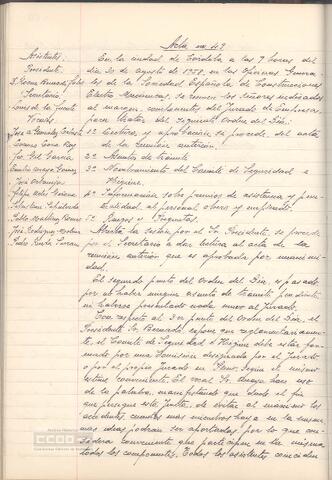 Acta nº 49
Asistentes:
Presidente:
Secretario
Luis de la Fuente
Vocales
José Rodríguez Molina
En la ciudad de Córdoba a las 9 horas del
día 20 de agosto de 1958, en las Oficinas Genera
les de la Sociedad Española de Construcciones
Electro Mecánicas, se reunen los señores indicados
al margen, componentes del Jurado de Empresa
para tratar del siguiente Orden del Día:
1º Lectura, y aprobación si procede, del acta
de la reunión anterior.
2º Asuntos de trámite
3º Nombramiento del Comité de Seguridad e
Higiene.
4º Información sobre premios de asistencia y pun
tualidad al personal obrero y empleado.
5º Ruegos y Preguntas.
Abierta la sesión por el Sr. Presidente, se procede
por el Secretario a dar lectura al acta de la
reunión anterior que es aprobada por unanimi
dad.
El segundo punto del Orden del Día, es pasado
por no haber ningún asunto de trámite pendiente
ni haberse presentado nada nuevo al Jurado.
Con respecto al 3er punto del Orden del Día, el
Presidente Sr. Bernardo, expone que reglamentariamen
te, el Comité de Seguridad e Higiene debe estar for
mado por una Comisión designada por el Jurado
o por el propio Jurado en Pleno, según el mismo
estime conveniente. El vocal Sr. Araujo hace uso
de la palabra, manifestando que dado el fin
que persigue esta Junta, de evitar al máximo los
accidentes, cuantos más miembros haya en la misma
más ideas podrán ser aportadas, por lo que con
sidera conveniente que participen en la misma
todos los componentes. Todos los asistentes coinciden
CCOO